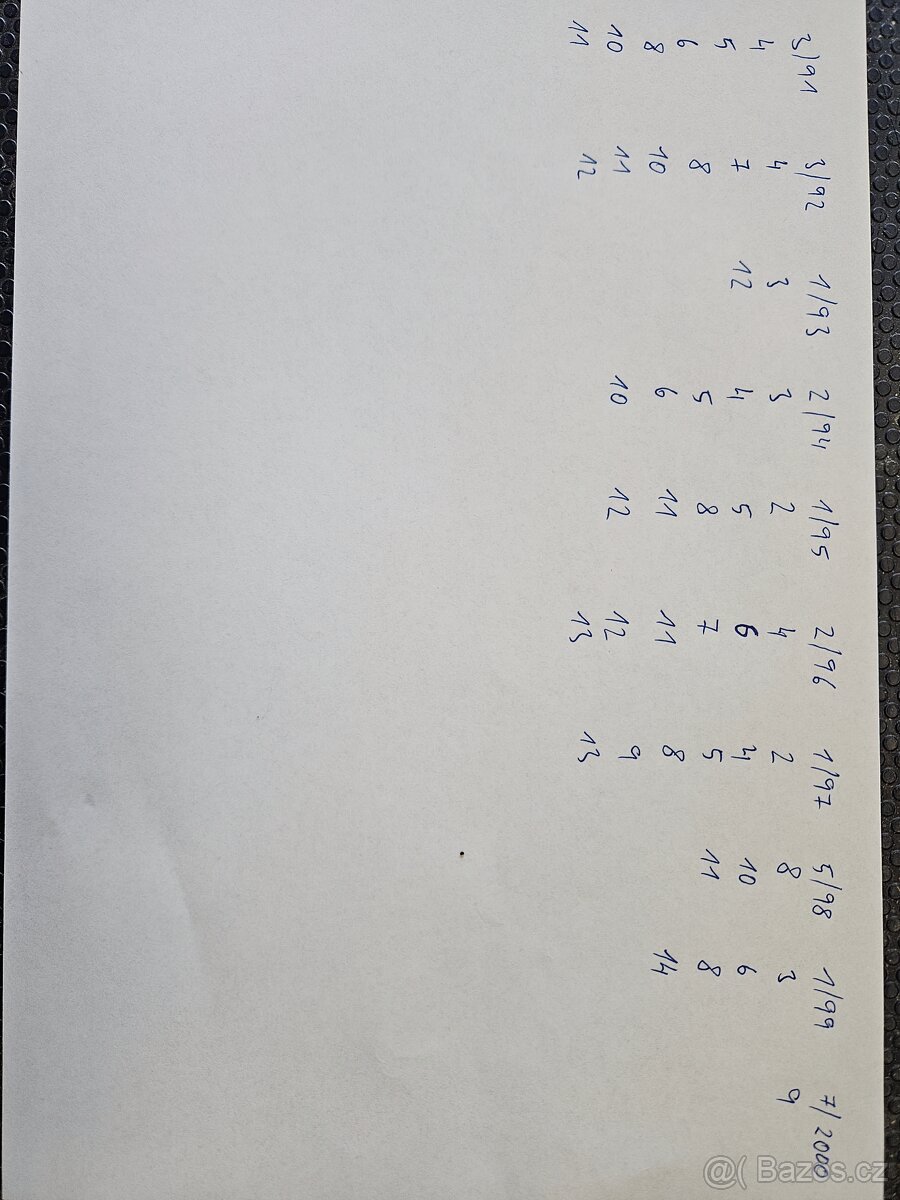 3/91 3/92 1/93 2/94 1/95 2/96 1/97 5/98 1/99 7/2000
4 4 3 3 2 4 2 8 3 9
5 7 12 4 5 6 4 10 6
6 8 5 8 7 5 11 8
8 10 6 11 11 8 14
10 11 10 12 12 9
11 12 13 13
@( Bazos.cz